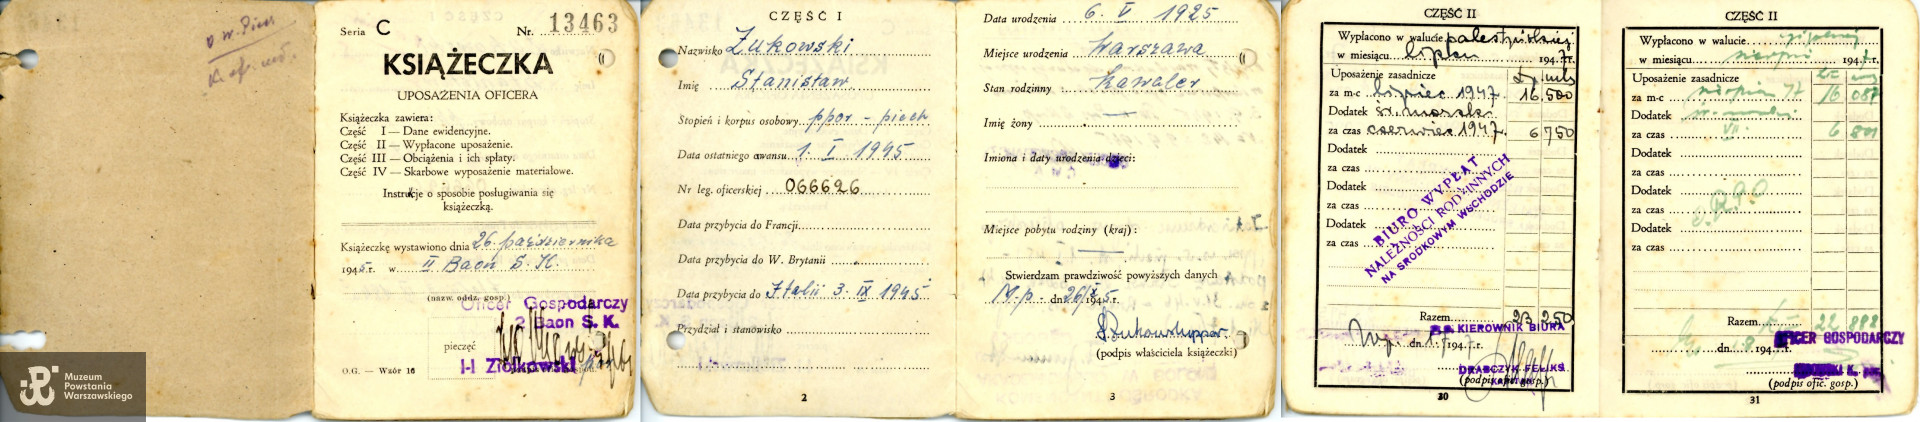 Seria C Nr. 13463
KSIĄŻECZKA
UPOSAŻENIA OFICERA
Książeczka zawiera:
Część I — Dane ewidencyjne.
Część II — Wypłacone uposażenie.
Część III — Obciążenia i ich spłaty.
Część IV — Skarbowe wyposażenie materiałowe.
Instrukcje o sposobie posługiwania się
książeczką.
Książeczkę wystawiono dnia 26. października
1945 r. w II Baon S. K.
(nazw. oddz. gosp.)
Oficer Gospodarczy
2 Baon S. K.
pieczęć
Ziółkowski
O.G. — Wzór 16
Muzeum
Powstania
Warszawskiego
CZĘŚĆ I
Nazwisko Żukowski
Imię Stanisław
Stopień i korpus osobowy ppor - piech
Data ostatniego awansu 1. I 1945
Nr leg. oficerskiej 066626
Data przybycia do Francji
Data przybycia do W. Brytanii
Data przybycia do Italii 3. IX 1945
Przydział i stanowisko
2
Data urodzenia 6. V 1925
Miejsce urodzenia Warszawa
Stan rodzinny kawaler
Imię żony —
Imiona i daty urodzenia dzieci:
Miejsce pobytu rodziny (kraj):
Stwierdzam prawdziwość powyższych danych
M.p. dn. 26/X 1945 r.
(podpis właściciela książeczki)
3
CZĘŚĆ II
Wypłacono w walucie palestyńskiej
w miesiącu lipcu 1947 r.
Uposażenie zasadnicze
za m-c lipiec 1947. 16 500
Dodatek
za czas czerwiec 1947. 6 750
Dodatek
za czas
Dodatek
za czas
Dodatek
za czas
BIURO WYPŁAT
NALEŻNOŚCI RODZINNYCH
NA ŚRODKOWYM WSCHODZIE
Razem 23 250
KIEROWNIK BIURA
DRABCZYK FELIKS
30
CZĘŚĆ II
Wypłacono w walucie
w miesiącu sierpni 194 r.
Uposażenie zasadnicze
za m-c sierpień 47 16 087
Dodatek
za czas VII. 6 801
Dodatek
za czas
Dodatek
za czas
Dodatek
za czas
Razem 22 888
OFICER GOSPODARCZY
(podpis ofic. gosp.)
31